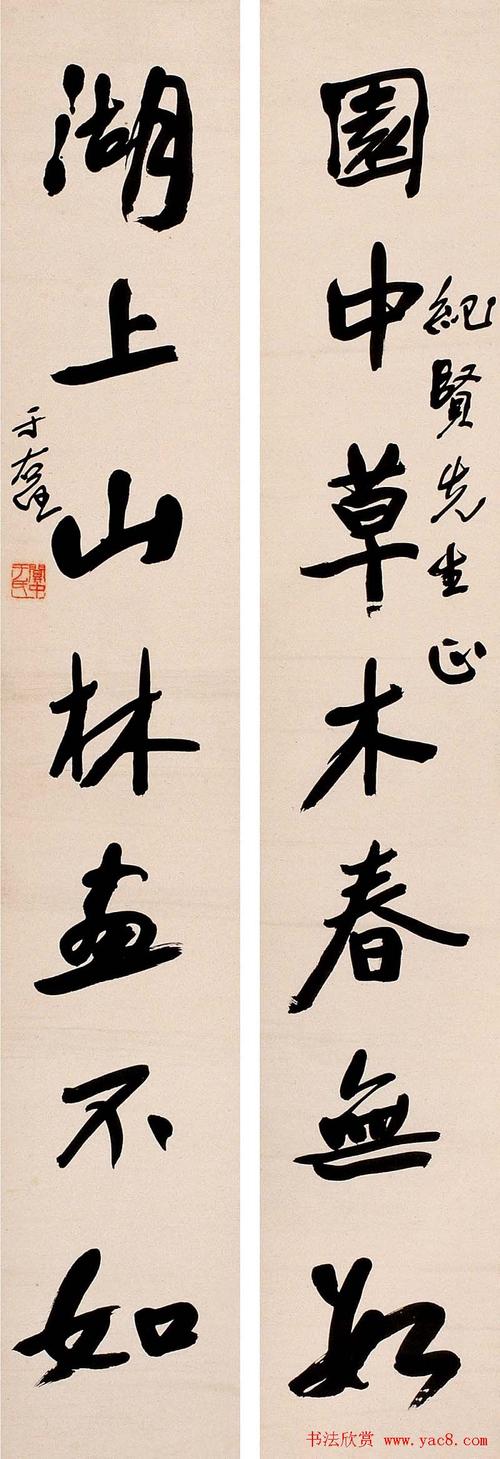 園中草木春無數
紀賢先生正
湖上山林畫不如
于右任
關中于氏
书法欣赏 www.yac8.com